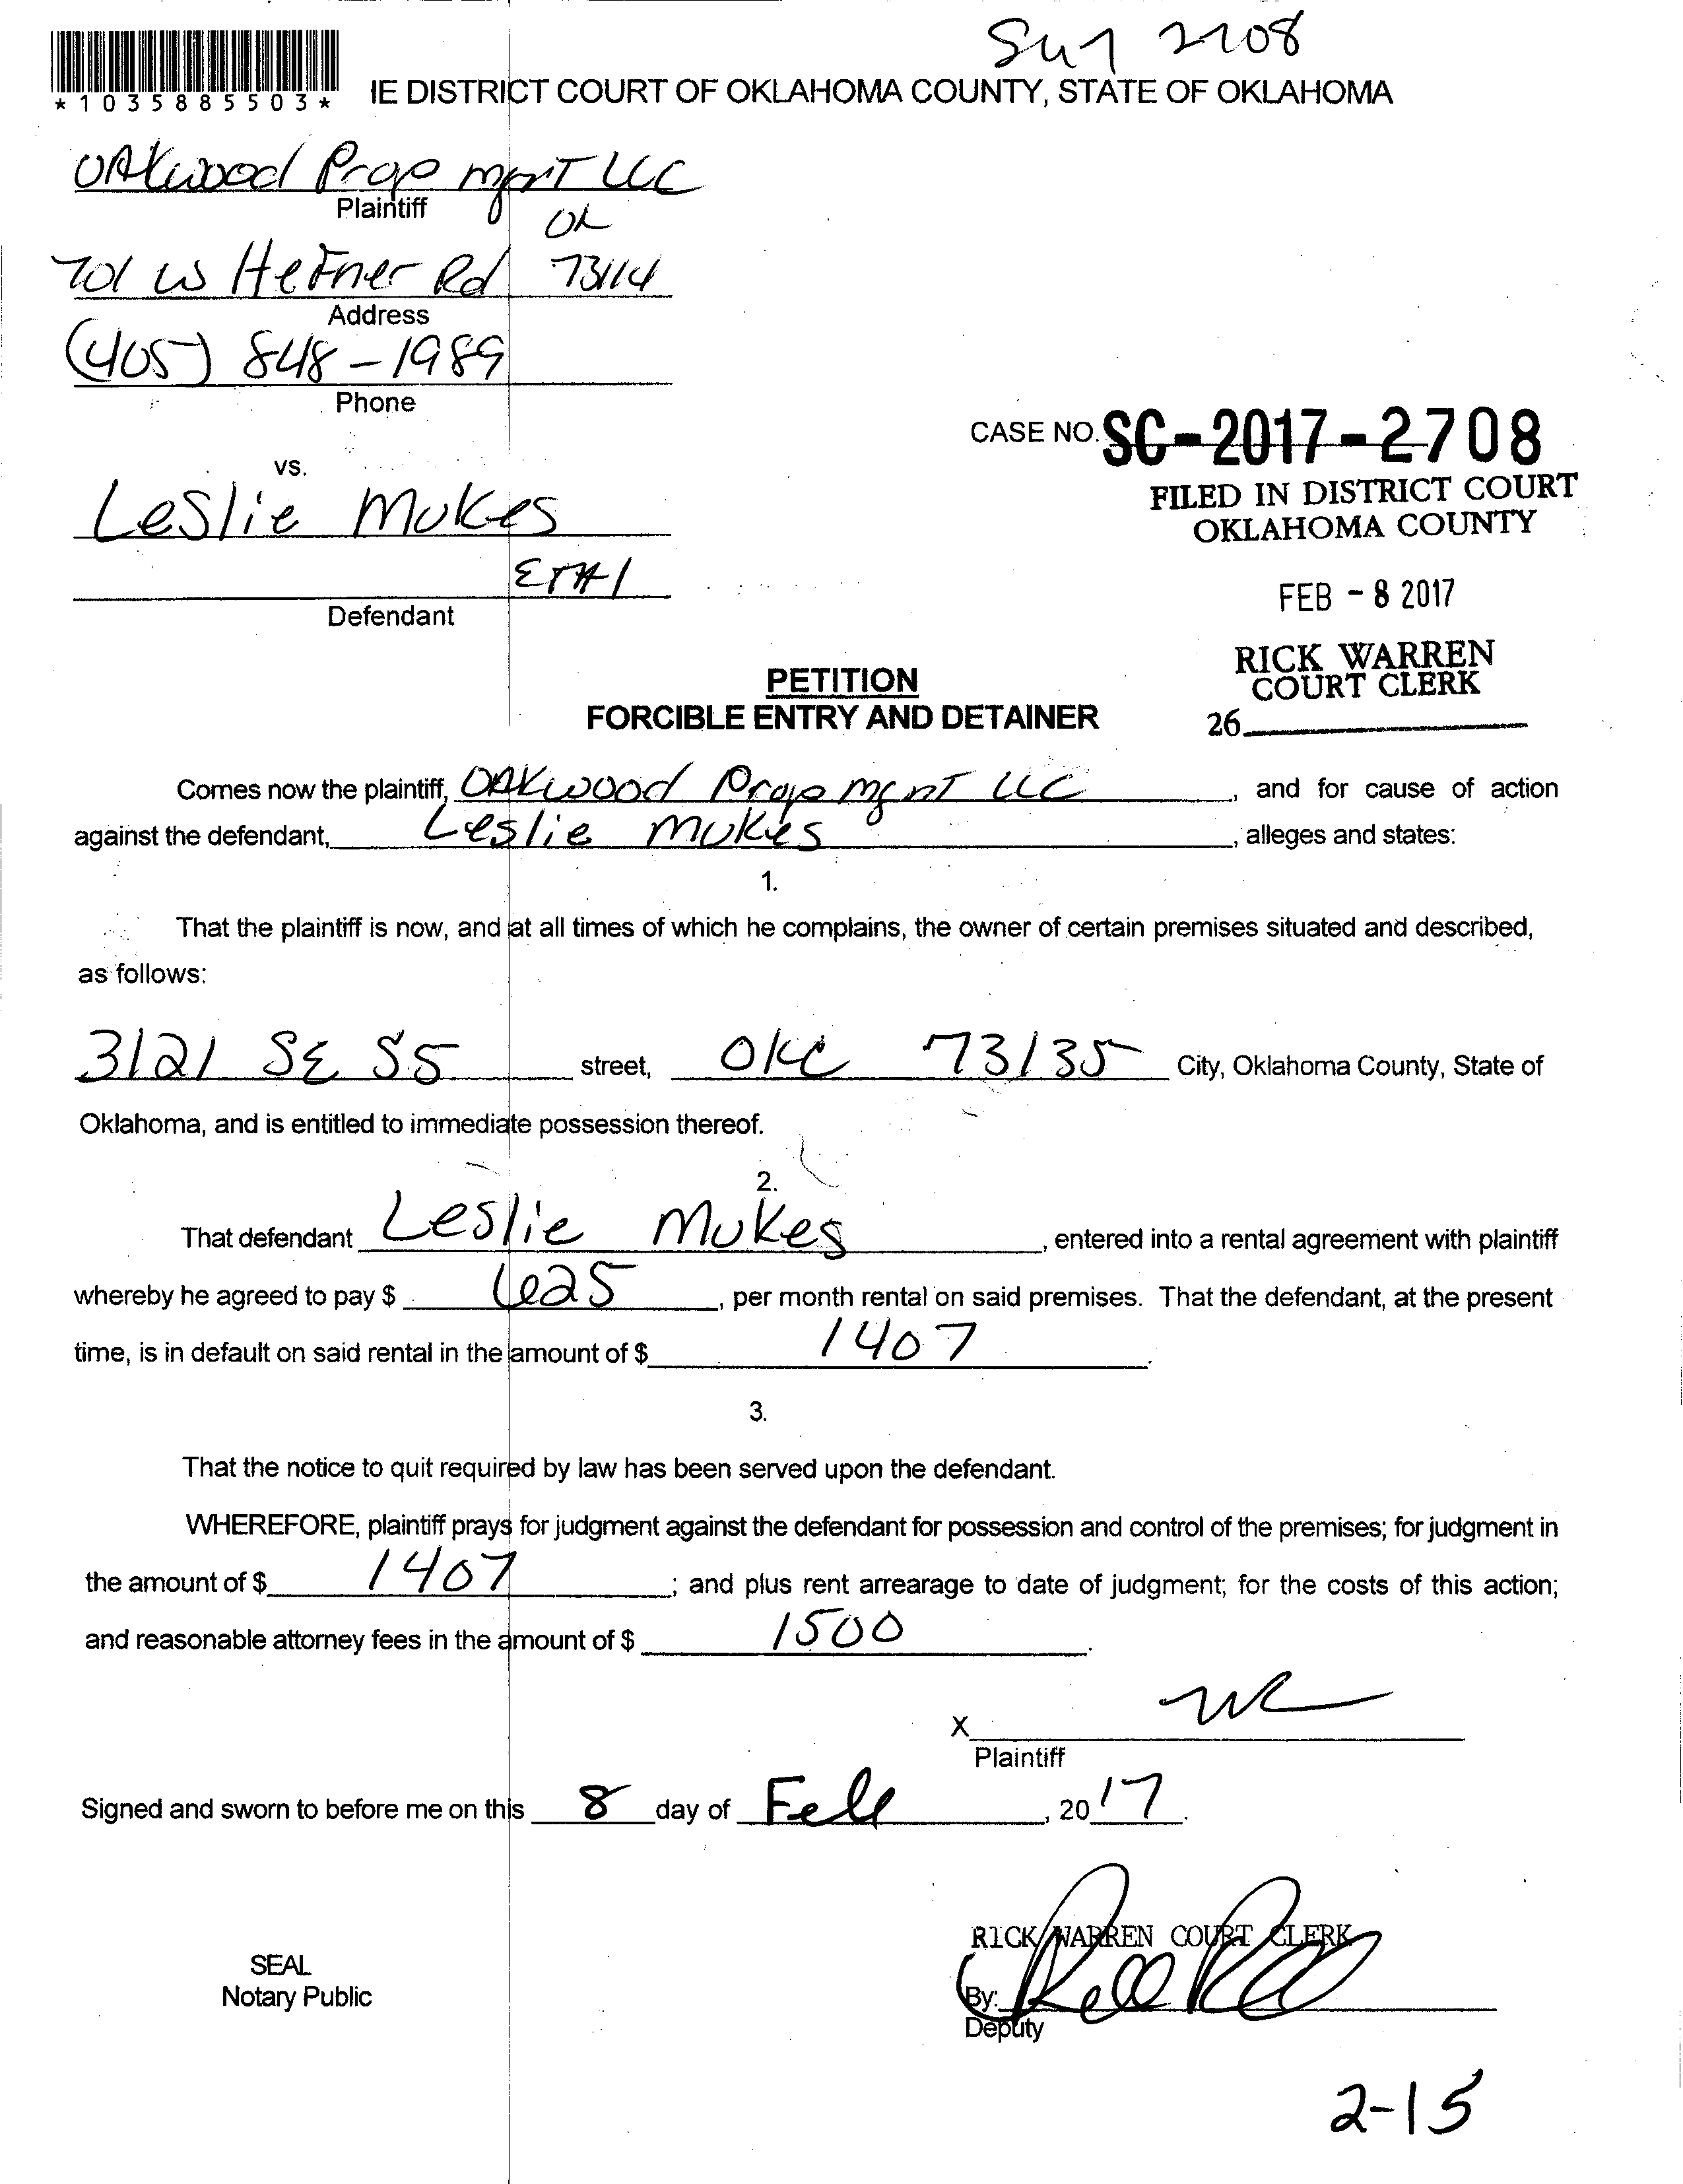 2208
*1035885503* IE DISTRICT COURT OF OKLAHOMA COUNTY, STATE OF OKLAHOMA
OAkwood Prop mgnT LLC
Plaintiff
OK
701 W HeFner Rd 73114
Address
(405) 848-1989
Phone
CASE NO. SC-2017-2708
vs.
FILED IN DISTRICT COURT
Leslie Mukes
OKLAHOMA COUNTY
FEB - 8 2017
Defendant
RICK WARREN
COURT CLERK
26
PETITION
FORCIBLE ENTRY AND DETAINER
Comes now the plaintiff, OAKwood Prop mgnT LLC, and for cause of action
against the defendant, Leslie Mukes, alleges and states:
1.
That the plaintiff is now, and at all times of which he complains, the owner of certain premises situated and described,
as follows:
3121 SE 55 street, OKC 73135 City, Oklahoma County, State of
Oklahoma, and is entitled to immediate possession thereof.
2.
That defendant Leslie Mukes, entered into a rental agreement with plaintiff
whereby he agreed to pay $ 625, per month rental on said premises. That the defendant, at the present
time, is in default on said rental in the amount of $ 1407.
3.
That the notice to quit required by law has been served upon the defendant.
WHEREFORE, plaintiff prays for judgment against the defendant for possession and control of the premises; for judgment in
the amount of $ 1407; and plus rent arrearage to date of judgment; for the costs of this action;
and reasonable attorney fees in the amount of $ 1500.
X
Plaintiff
Signed and sworn to before me on this 8 day of Feb, 2017.
RICK WARREN COURT CLERK
SEAL
Notary Public
By:
Deputy
2-15